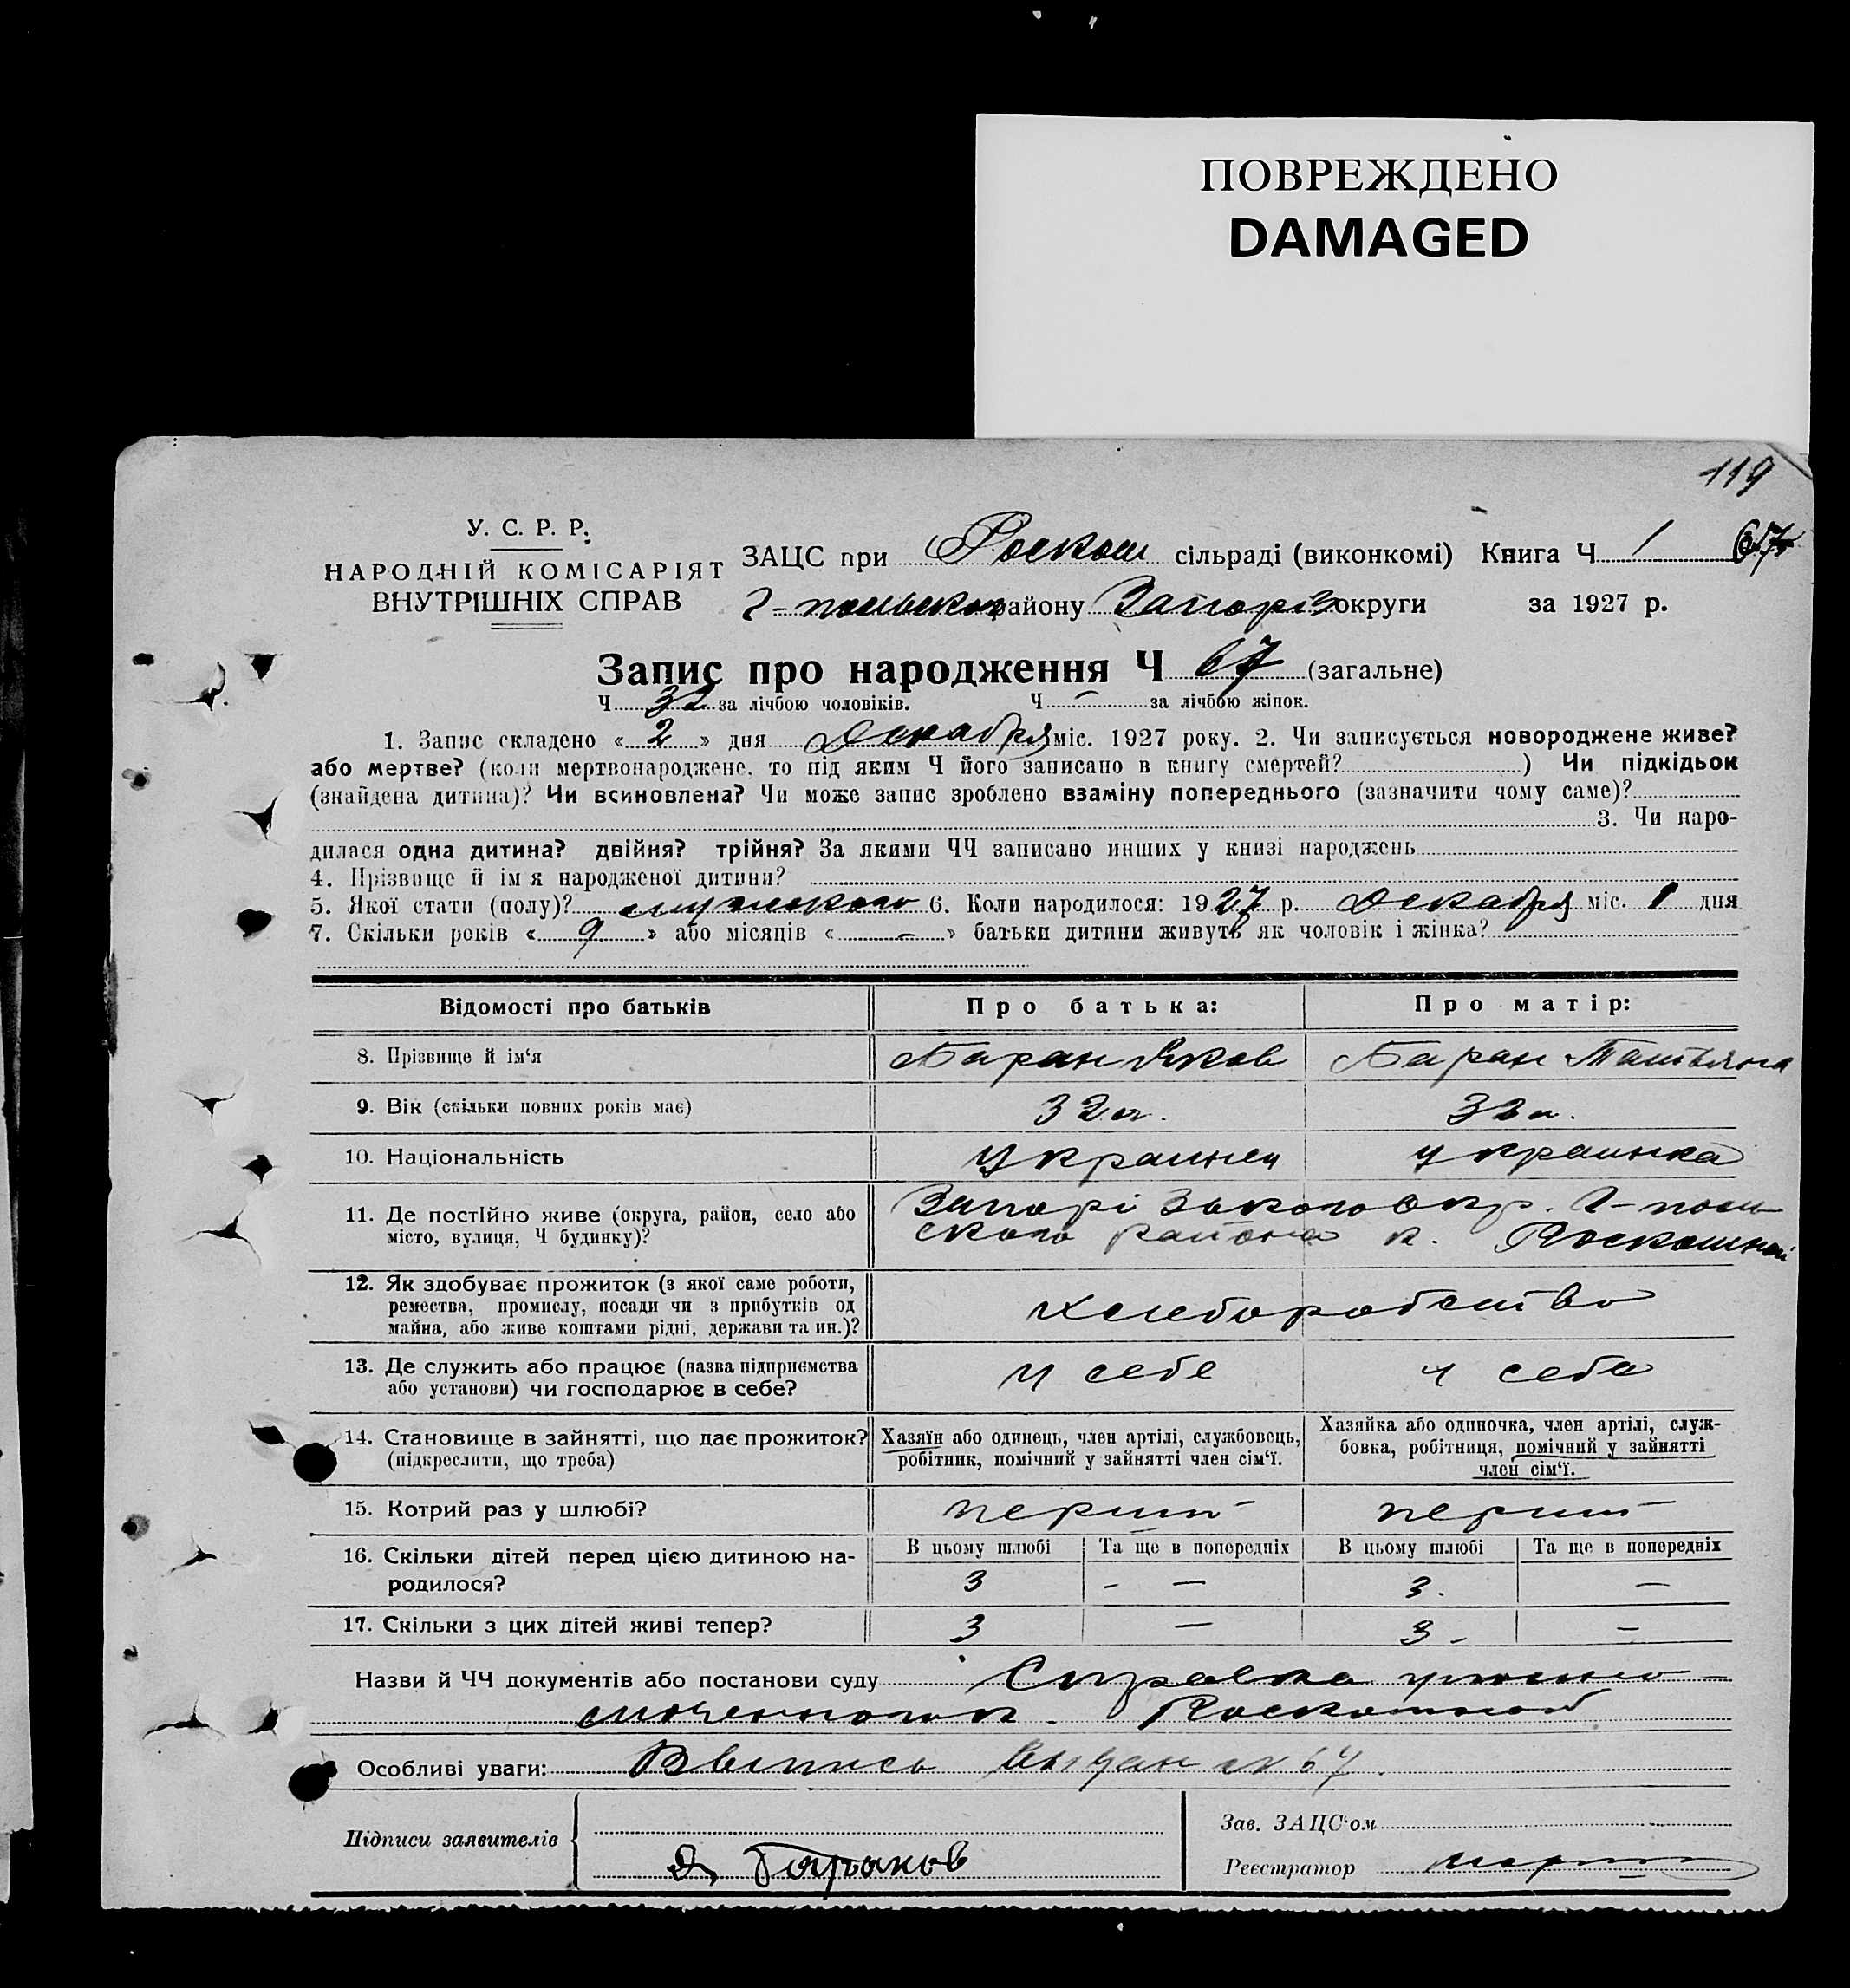 ПОВРЕЖДЕНО
DAMAGED
119
У. С. Р. Р.
НАРОДНІЙ КОМІСАРІЯТ
ВНУТРІШНІХ СПРАВ
ЗАЦС при Роскош сільраді (виконкомі) Книга Ч 1 67
району Запоріз округи за 1927 р.
Запис про народження Ч 67 (загальне)
Ч 32 за лічбою чоловіків. Ч - за лічбою жінок.
1. Запис складено « 2 » дня Декабря міс. 1927 року. 2. Чи записується новороджене живе?
або мертве? (коли мертвонароджене, то під яким Ч його записано в книгу смертей? ) Чи підкідьок
(знайдена дитина)? Чи всиновлена? Чи може запис зроблено взаміну попереднього (зазначити чому саме)?
3. Чи наро-
дилася одна дитина? двійня? трійня? За якими ЧЧ записано инших у книзі народжень
4. Прізвище й ім'я народженої дитини?
5. Якої стати (полу)? мужского 6. Коли народилося: 1927 р. Декабря міс. 1 дня
7. Скільки років « 9 » або місяців « - » батьки дитини живуть як чоловік і жінка?
Відомості про батьків Про батька: Про матір:
8. Прізвище й ім‘я Баран Яков Баран Татьяна
9. Вік (скільки повних років має) 32 л. 32 л.
10. Національність украинец украинка
11. Де постійно живе (округа, район, село або
місто, вулиця, Ч будинку)?
Запорі Зького Окр.
ского района к. Роскошной
12. Як здобуває прожиток (з якої саме роботи,
ремества, промислу, посади чи з прибутків од
майна, або живе коштами рідні, держави та ин.)?
хлеборобство
13. Де служить або працює (назва підприємства
або установи) чи господарює в себе?
у себе у себе
14. Становище в зайнятті, що дає прожиток?
(підкреслити, що треба)
Хазяїн або одинець, член артілі, службовець,
робітник, помічний у зайнятті член сім‘ї.
Хазяйка або одиночка, член артілі, служ-
бовка, робітниця, помічний у зайнятті
член сім‘ї.
15. Котрий раз у шлюбі? перший перший
16. Скільки дітей перед цією дитиною на-
родилося?
В цьому шлюбі Та ще в попередніх В цьому шлюбі Та ще в попередніх
3 - — 3. —
17. Скільки з цих дітей живі тепер? 3 — 3 - —
Назви й ЧЧ документів або постанови суду Справка уполно-
моченного к. Роскошной
Особливі уваги: Выпись выдан № 67.
Підписи заявителів
Зав. ЗАЦС‘ом
Реєстратор